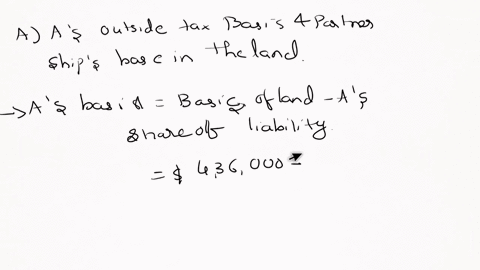 A) A's outside tax Basis & Partner
Ship's base in the land.
→ A's basis = Basis of land - A's
share of liability.
= $ 436,000